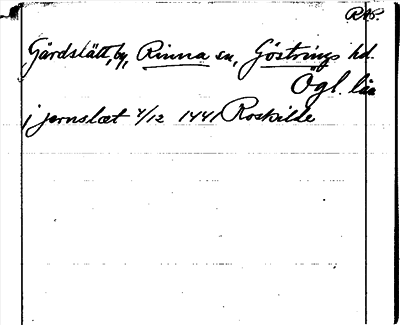 RAP.
Gärdslätt, by, Rinna sn, Göstrings hd.
Ögl. län
j jernslæt 4/12 1441 Roskilde